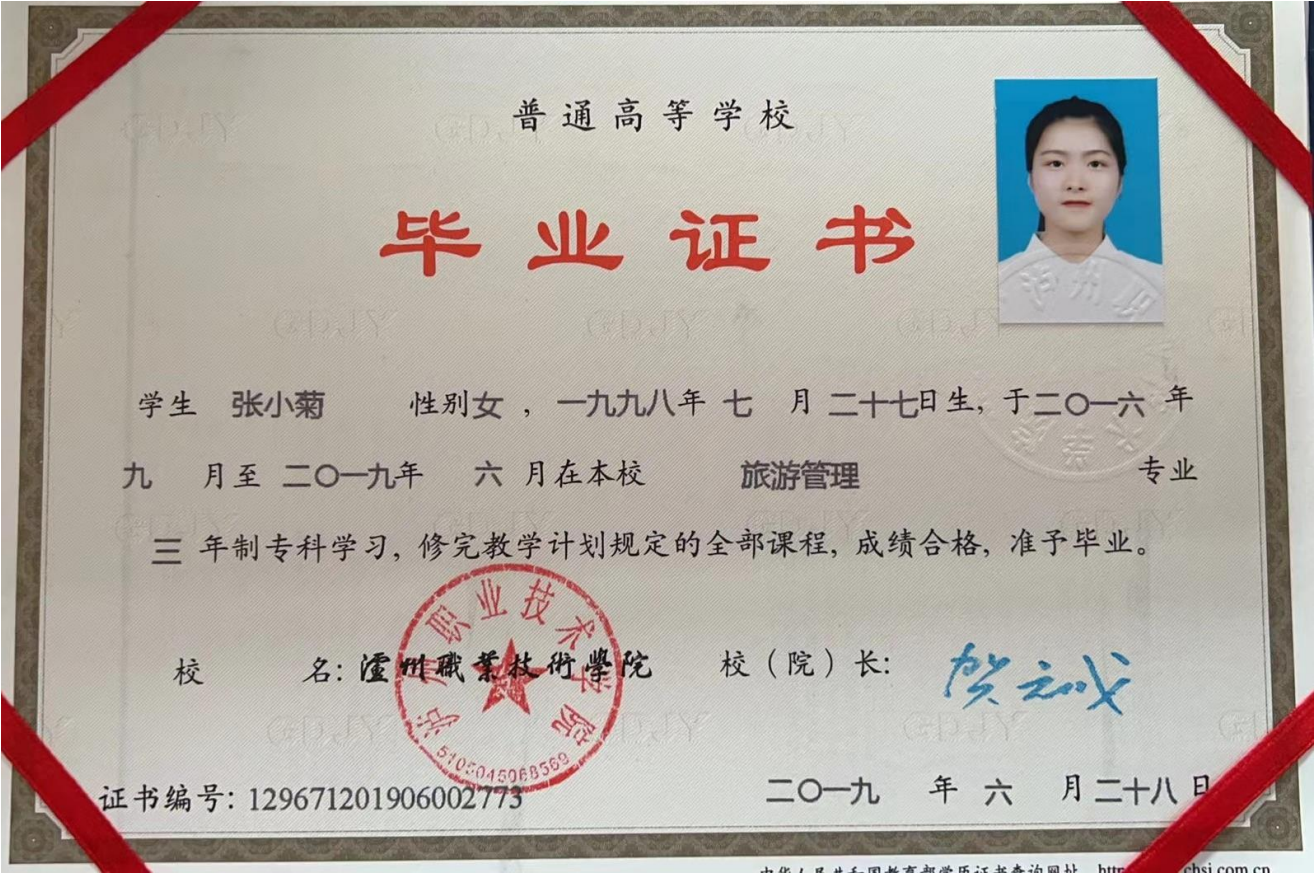 普通高等学校
毕业证书
学生 张小菊 性别女，一九九八年 七 月 二十七日生，于二〇一六 年
九 月至 二〇一九年 六 月在本校 旅游管理 专业
三 年制专科学习，修完教学计划规定的全部课程，成绩合格，准予毕业。
校 名：瀘州職業技術學院 校（院）长：
泸州职业技术学院
5105045068569
证书编号：129671201906002773 二〇一九 年 六 月 二十八 日
中华人民共和国教育部学历证书查询网址